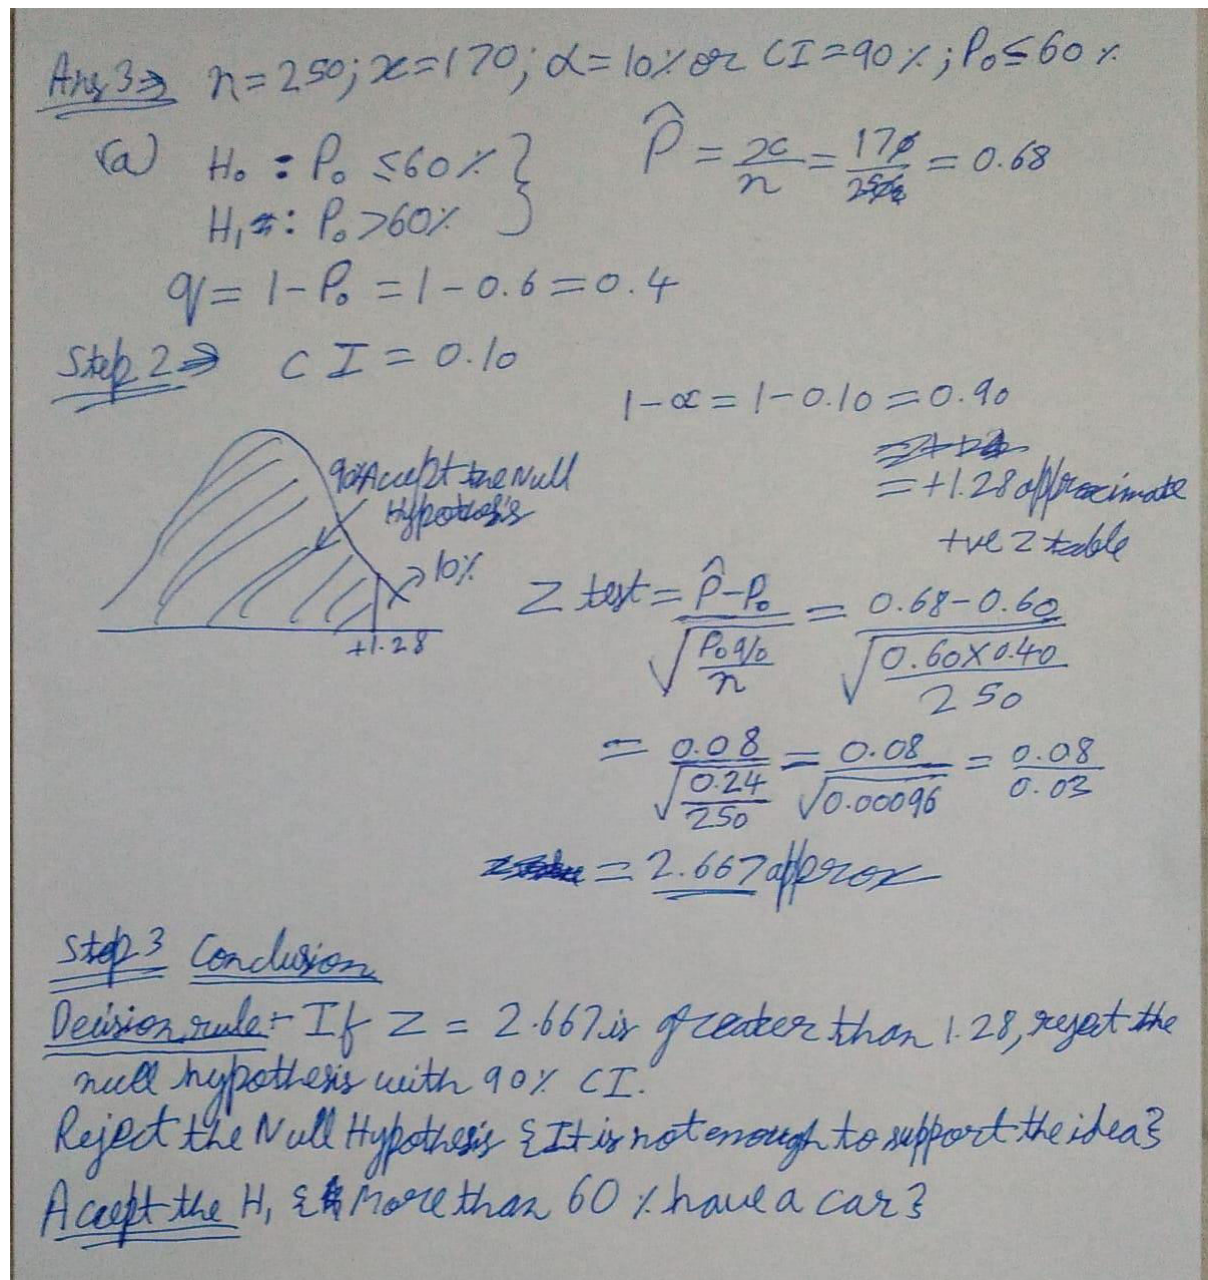 Ans 3⇒ n=250; x=170; α=10% or CI=90%; P₀≤60%
(a) H₀ : P₀ ≤60% }
P̂ = x/n = 170/250 = 0.68
H₁ : P₀ >60% }
q = 1-P₀ = 1-0.6 = 0.4
Step 2⇒ CI = 0.10
1-α = 1-0.10 = 0.90
= +1.28 approximate
+ve z table
90% Accept the Null
Hypothesis
10%
+1.28
Z test = P̂-P₀/√(P₀q₀/n) = 0.68-0.60/√(0.60×0.40/250)
= 0.08/√(0.24/250) = 0.08/√0.00096 = 0.08/0.03
= 2.667 approx
Step 3 Conclusion
Decision rule:- If Z = 2.667 is greater than 1.28, reject the
null hypothesis with 90% CI.
Reject the Null Hypothesis {It is not enough to support the idea}
Accept the H₁ {More than 60% have a car}